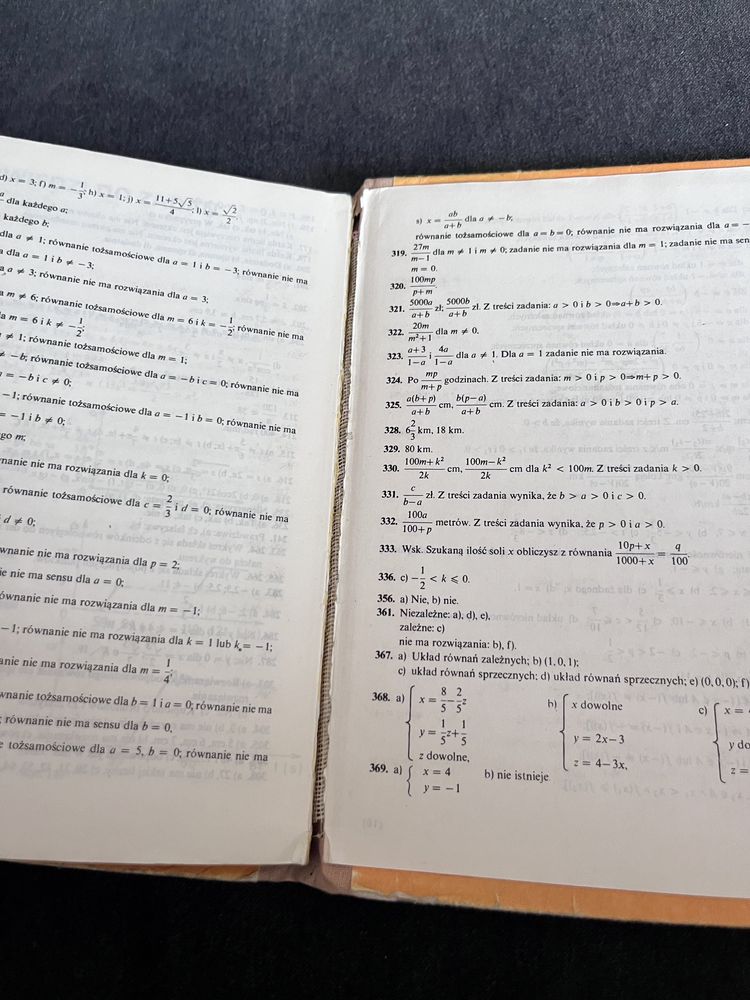 d) x = 3; f) m = -1/3; h) x = 1; j) x = (11+5√5)/4; l) x = √2/2.
dla każdego a;
każdego b;
dla a ≠ 1; równanie tożsamościowe dla a = 1 i b = -3; równanie nie ma
dla a = 1 i b ≠ -3;
a ≠ 3; równanie nie ma rozwiązania dla a = 3;
m ≠ 6; równanie tożsamościowe dla m = 6 i k = -1/2; równanie nie ma
m = 6 i k ≠ -1/2;
≠ 1; równanie tożsamościowe dla m = 1;
≠ -b; równanie tożsamościowe dla a = -b i c = 0; równanie nie ma
= -b i c ≠ 0;
-1; równanie tożsamościowe dla a = -1 i b = 0; równanie nie ma
= -1 i b ≠ 0;
m;
nie ma rozwiązania dla k = 0;
równanie tożsamościowe dla c = 2/3 i d = 0; równanie nie ma
d ≠ 0;
nie ma rozwiązania dla p = 2;
nie ma sensu dla a = 0;
równanie nie ma rozwiązania dla m = -1;
-1; równanie nie ma rozwiązania dla k = 1 lub k = -1;
nie ma rozwiązania dla m = 1/4;
tożsamościowe dla b = 1 i a = 0; równanie nie ma
równanie nie ma sensu dla b = 0.
tożsamościowe dla a = 5, b = 0; równanie nie ma
s) x = ab/(a+b) dla a ≠ -b;
równanie tożsamościowe dla a = b = 0; równanie nie ma rozwiązania dla a = -
319. 27m/(m-1) dla m ≠ 1 i m ≠ 0; zadanie nie ma rozwiązania dla m = 1; zadanie nie ma
m = 0.
320. 100mp/(p+m).
321. 5000a/(a+b) zł; 5000b/(a+b) zł. Z treści zadania: a > 0 i b > 0⇒a+b > 0.
322. 20m/(m²+1) dla m ≠ 0.
323. (a+3)/(1-a) i 4a/(1-a) dla a ≠ 1. Dla a = 1 zadanie nie ma rozwiązania.
324. Po mp/(m+p) godzinach. Z treści zadania: m > 0 i p > 0⇒m+p > 0.
325. a(b+p)/(a+b) cm, b(p-a)/(a+b) cm. Z treści zadania: a > 0 i b > 0 i p > a.
328. 6 2/3 km, 18 km.
329. 80 km.
330. (100m+k²)/2k cm, (100m-k²)/2k cm dla k² < 100m. Z treści zadania k > 0.
331. c/(b-a) zł. Z treści zadania wynika, że b > a > 0 i c > 0.
332. 100a/(100+p) metrów. Z treści zadania wynika, że p > 0 i a > 0.
333. Wsk. Szukaną ilość soli x obliczysz z równania (10p+x)/(1000+x) = q/100.
336. c) -1/2 < k ⩽ 0.
356. a) Nie, b) nie.
361. Niezależne: a), d), e),
zależne: c)
nie ma rozwiązania: b), f).
367. a) Układ równań zależnych; b) (1, 0, 1);
c) układ równań sprzecznych; d) układ równań sprzecznych; e) (0, 0, 0); f)
368. a) { x = 8/5 - 2/5 z b) { x dowolne c) { x =
y = 1/5 z + 1/5 y = 2x-3 y
z dowolne, z = 4-3x, z =
369. a) { x = 4 b) nie istnieje
y = -1